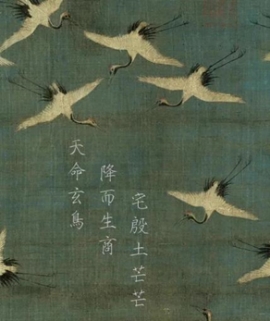 天命玄鳥
降而生商
宅殷土芒芒